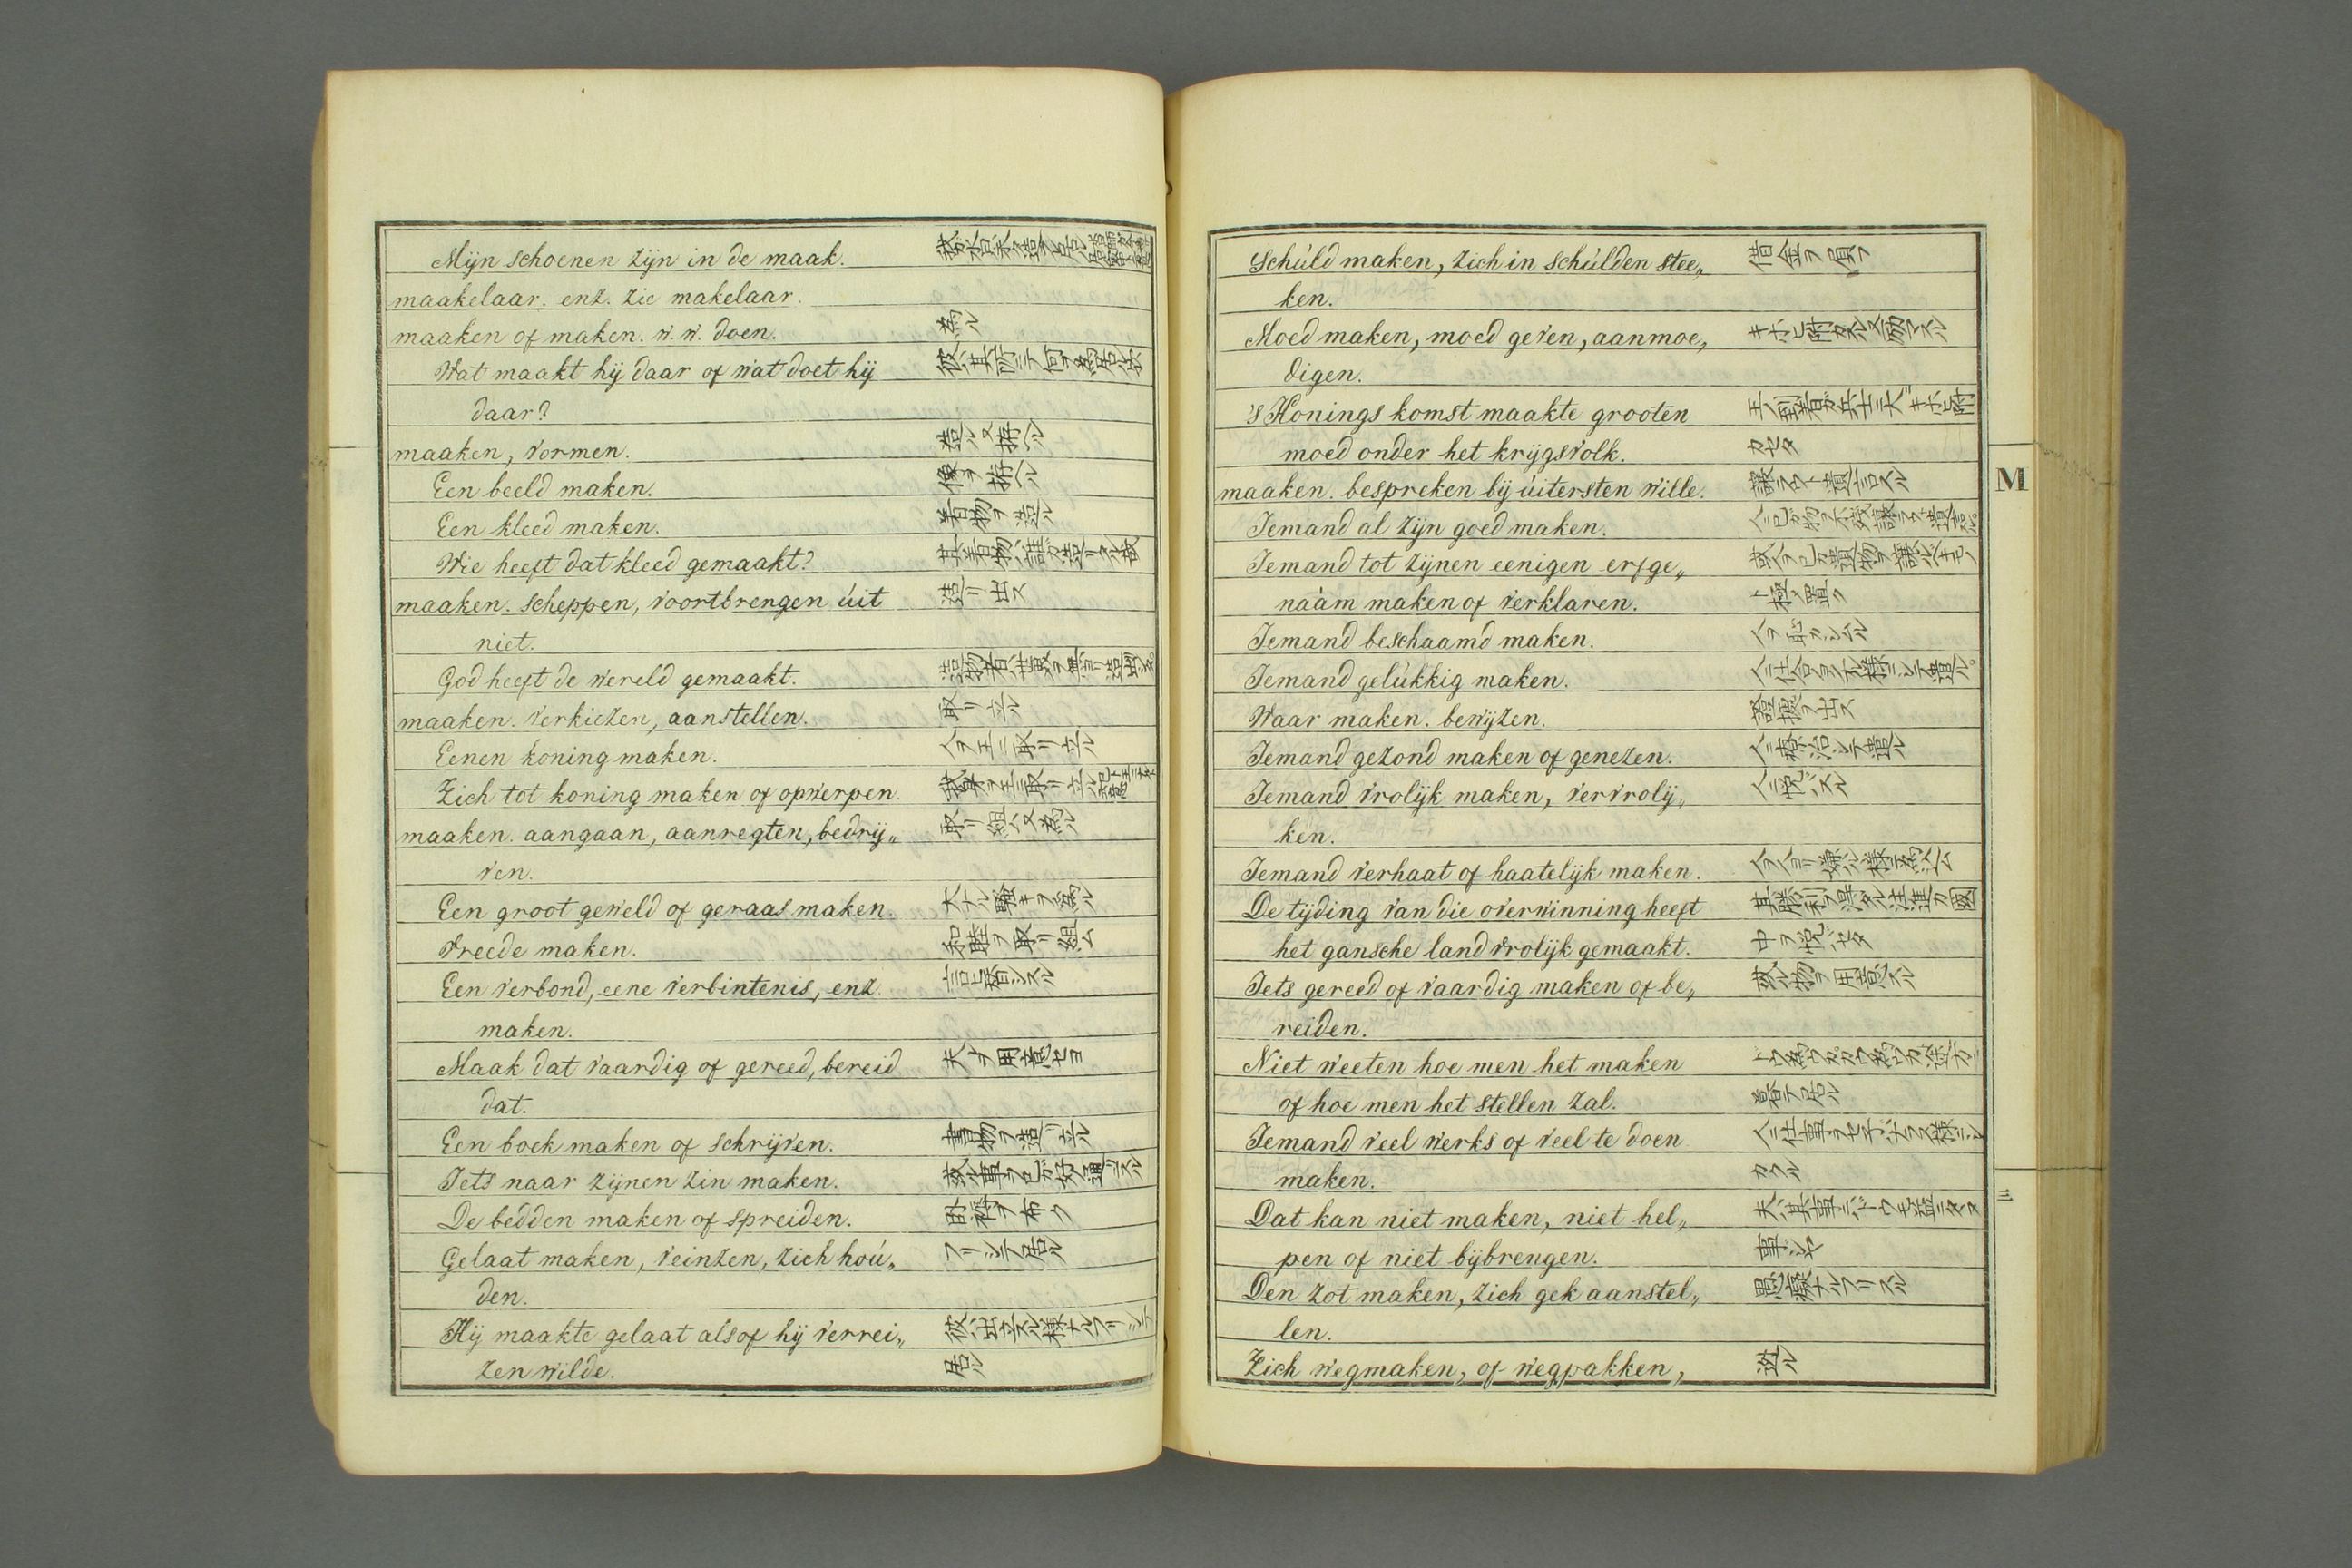 Mijn schoenen zijn in de maak.
maakelaar. enz. zie makelaar.
maaken of maken. w. w. doen. 為ル
Wat maakt hij daar of wat doet hij 彼ハ其所ニテ何ヲ為居ル哉
daar?
maaken, vormen. 造ル又拵ヘル
Een beeld maken. 像ヲ拵ヘル
Een kleed maken. 着物ヲ造ル
Wie heeft dat kleed gemaakt? 其着物ハ誰カ造リタル哉
maaken. scheppen, voortbrengen úit 造リ出ス
niet.
God heeft de wereld gemaakt.
maaken. verkiezen, aanstellen. 取リ立ル
Eenen koning maken. 人ヲ王ニ取リ立ル
Zich tot koning maken of opwerpen.
maaken. aangaan, aanregten, bedrij„ 取リ組ム又為ル
ven.
Een groot geweld of geraas maken. 大ナル騒キヲ為ル
Vreede maken. 和睦ヲ取リ組ム
Een verbond, eene verbintenis, enz.
maken.
Maak dat vaardig of gereed, bereid 夫ヲ用意セヨ
dat.
Een boek maken of schrijven. 書物ヲ造リ立ル
Iets naar zijnen zin maken. 或ル事ヲ己カ好ム通リニスル
De bedden maken of spreiden. 臥褥ヲ布ク
Gelaat maken, veinzen, zich hoú„ フリシテ居ル
den.
Hij maakte gelaat alsof hij verrei„ 彼ハ出立スル様ナルフリシテ
zen wilde. 居ル
Schúld maken, zich in schúlden stee„ 借金ヲ負フ
ken.
Moed maken, moed geven, aanmoe„
digen.
's Konings komst maakte grooten 王ノ到着カ兵士ニ大ニキホヒ附
moed onder het krijgsvolk. カセタ
maaken. bespreken bij úitersten wille. 譲ラウト遺言スル
Iemand al zijn goed maken.
Iemand tot zijnen eenigen erfge„
náàm maken of verklaren. ト極メ置ク
Iemand beschaamd maken. 人ヲ恥カシムル
Iemand gelúkkig maken.
Waar maken. bewijzen. 證拠ヲ出ス
Iemand gezond maken of genezen. 人ニ療治シテ遣ル
Iemand vrolijk maken, vervrolij„
ken.
Iemand verhaat of haatelijk maken.
De tijding van die overwinning heeft 其勝利ヲ得タル注進カ國
het gansche land vrolijk gemaakt. 中ヲ悦バセタ
Iets gereed of vaardig maken of be„ 或ル物ヲ用意スル
reiden.
Niet weeten hoe men het maken
of hoe men het stellen zal. 暮テ居ル
Iemand veel werks of veel te doen
maken.
Dat kan niet maken, niet hel„
pen of niet bijbrengen. 事ジヤ
Den zot maken, zich gek aanstel„ 愚癡ナルフリスル
len.
Zich wegmaken, of wegpakken, 迯ル
M
三